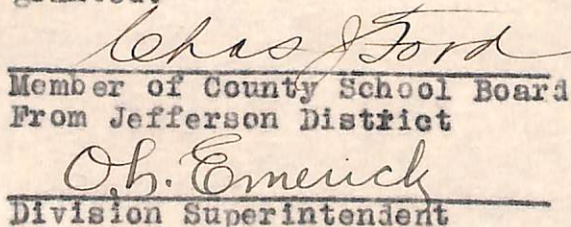 granted.
Chas J Ford
Member of County School Board
From Jefferson District
O.L. Emerick
Division Superintendent